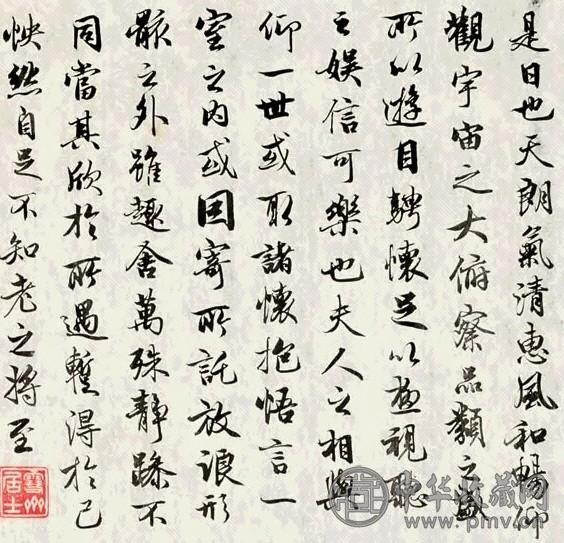 是日也天朗氣清惠風和暢仰
觀宇宙之大俯察品類之盛
所以遊目騁懷足以極視聽
之娛信可樂也夫人之相與
仰一世或取諸懷抱悟言一
室之內或因寄所託放浪形
骸之外雖趣舍萬殊靜躁不
同當其欣於所遇暫得於己
怏然自足不知老之將至
居士
中华收藏网
www.pmv.cn